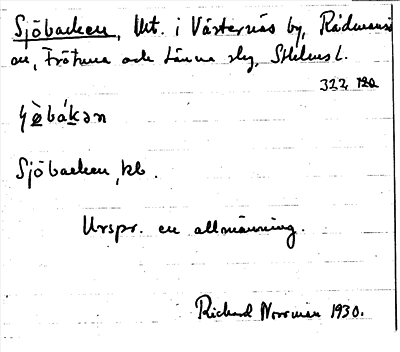 Sjöbacken, Uht. i Västernäs by, Rådmansö
on, Frötuna och Länna slg, Sthlms l.
322 120
Sjöbacken, kb.
Urspr. en allmänning.
Richard Norrman 1930.